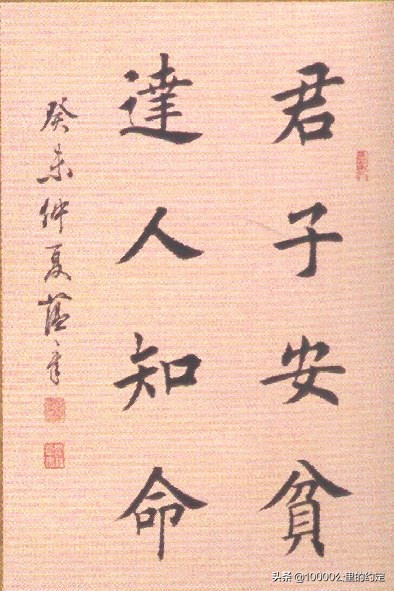 君子安貧
達人知命
癸未仲夏蔭章
头条 @10000公里的约定